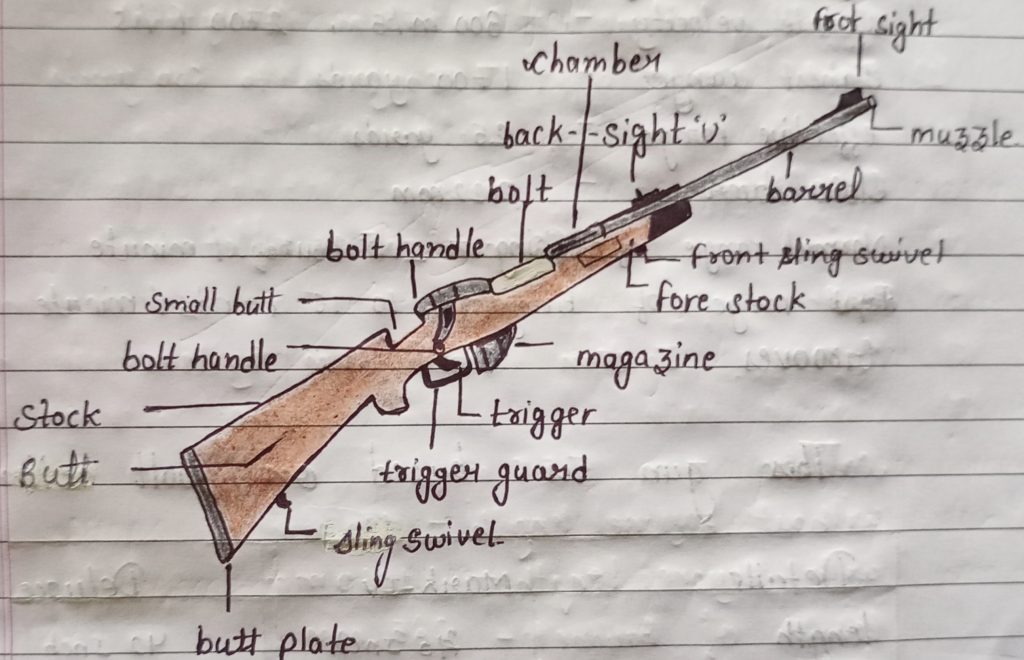 foot sight
chamber
muzzle
back-sight 'U'
barrel
bolt
bolt handle
front sling swivel
small butt
fore stock
bolt handle
magazine
stock
trigger
butt
trigger guard
sling swivel
butt plate